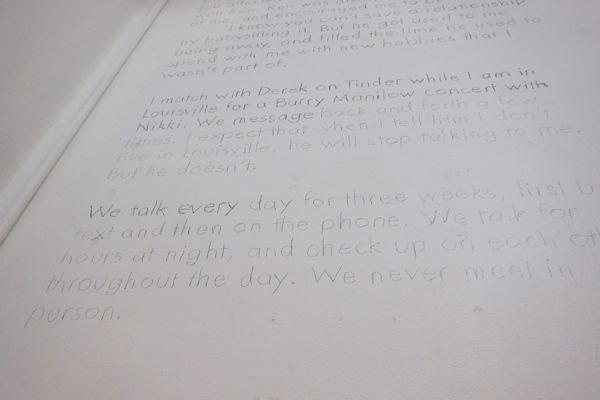 job
with her. Ken was
of me, and encouraged me to be
I know you can't save a relationship
by babysitting it. But he got used to me
being away, and filled the time he used to
spend with me with new hobbies that I
wasn't part of.
I match with Derek on Tinder while I am in
Louisville for a Barry Manilow concert with
Nikki. We message back and forth a few
times. I expect that when I tell him I don't
live in Louisville, he will stop talking to me.
But he doesn't.
We talk every day for three weeks, first b
text and then on the phone. We talk for
hours at night, and check up on each oth
throughout the day. We never meet in
person.